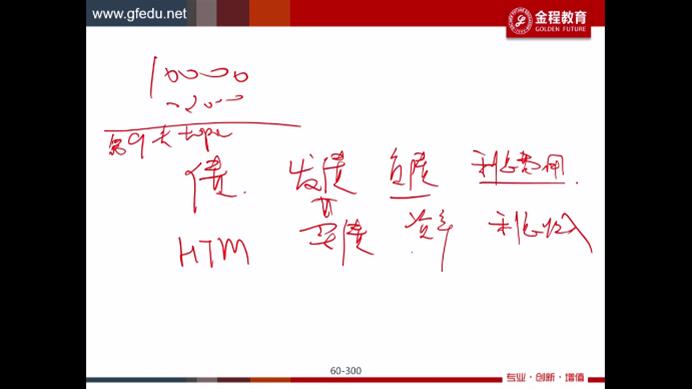 www.gfedu.net
金程教育
GOLDEN FUTURE
100000
第9大 topic
债 发债 负债 利息费用
HTM 买债 资产 利息收入
60-300
专业·创新·增值